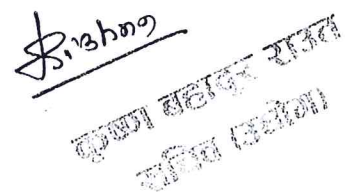 Krishna
कृष्ण बहादुर राउत
सचिव (उद्योग)